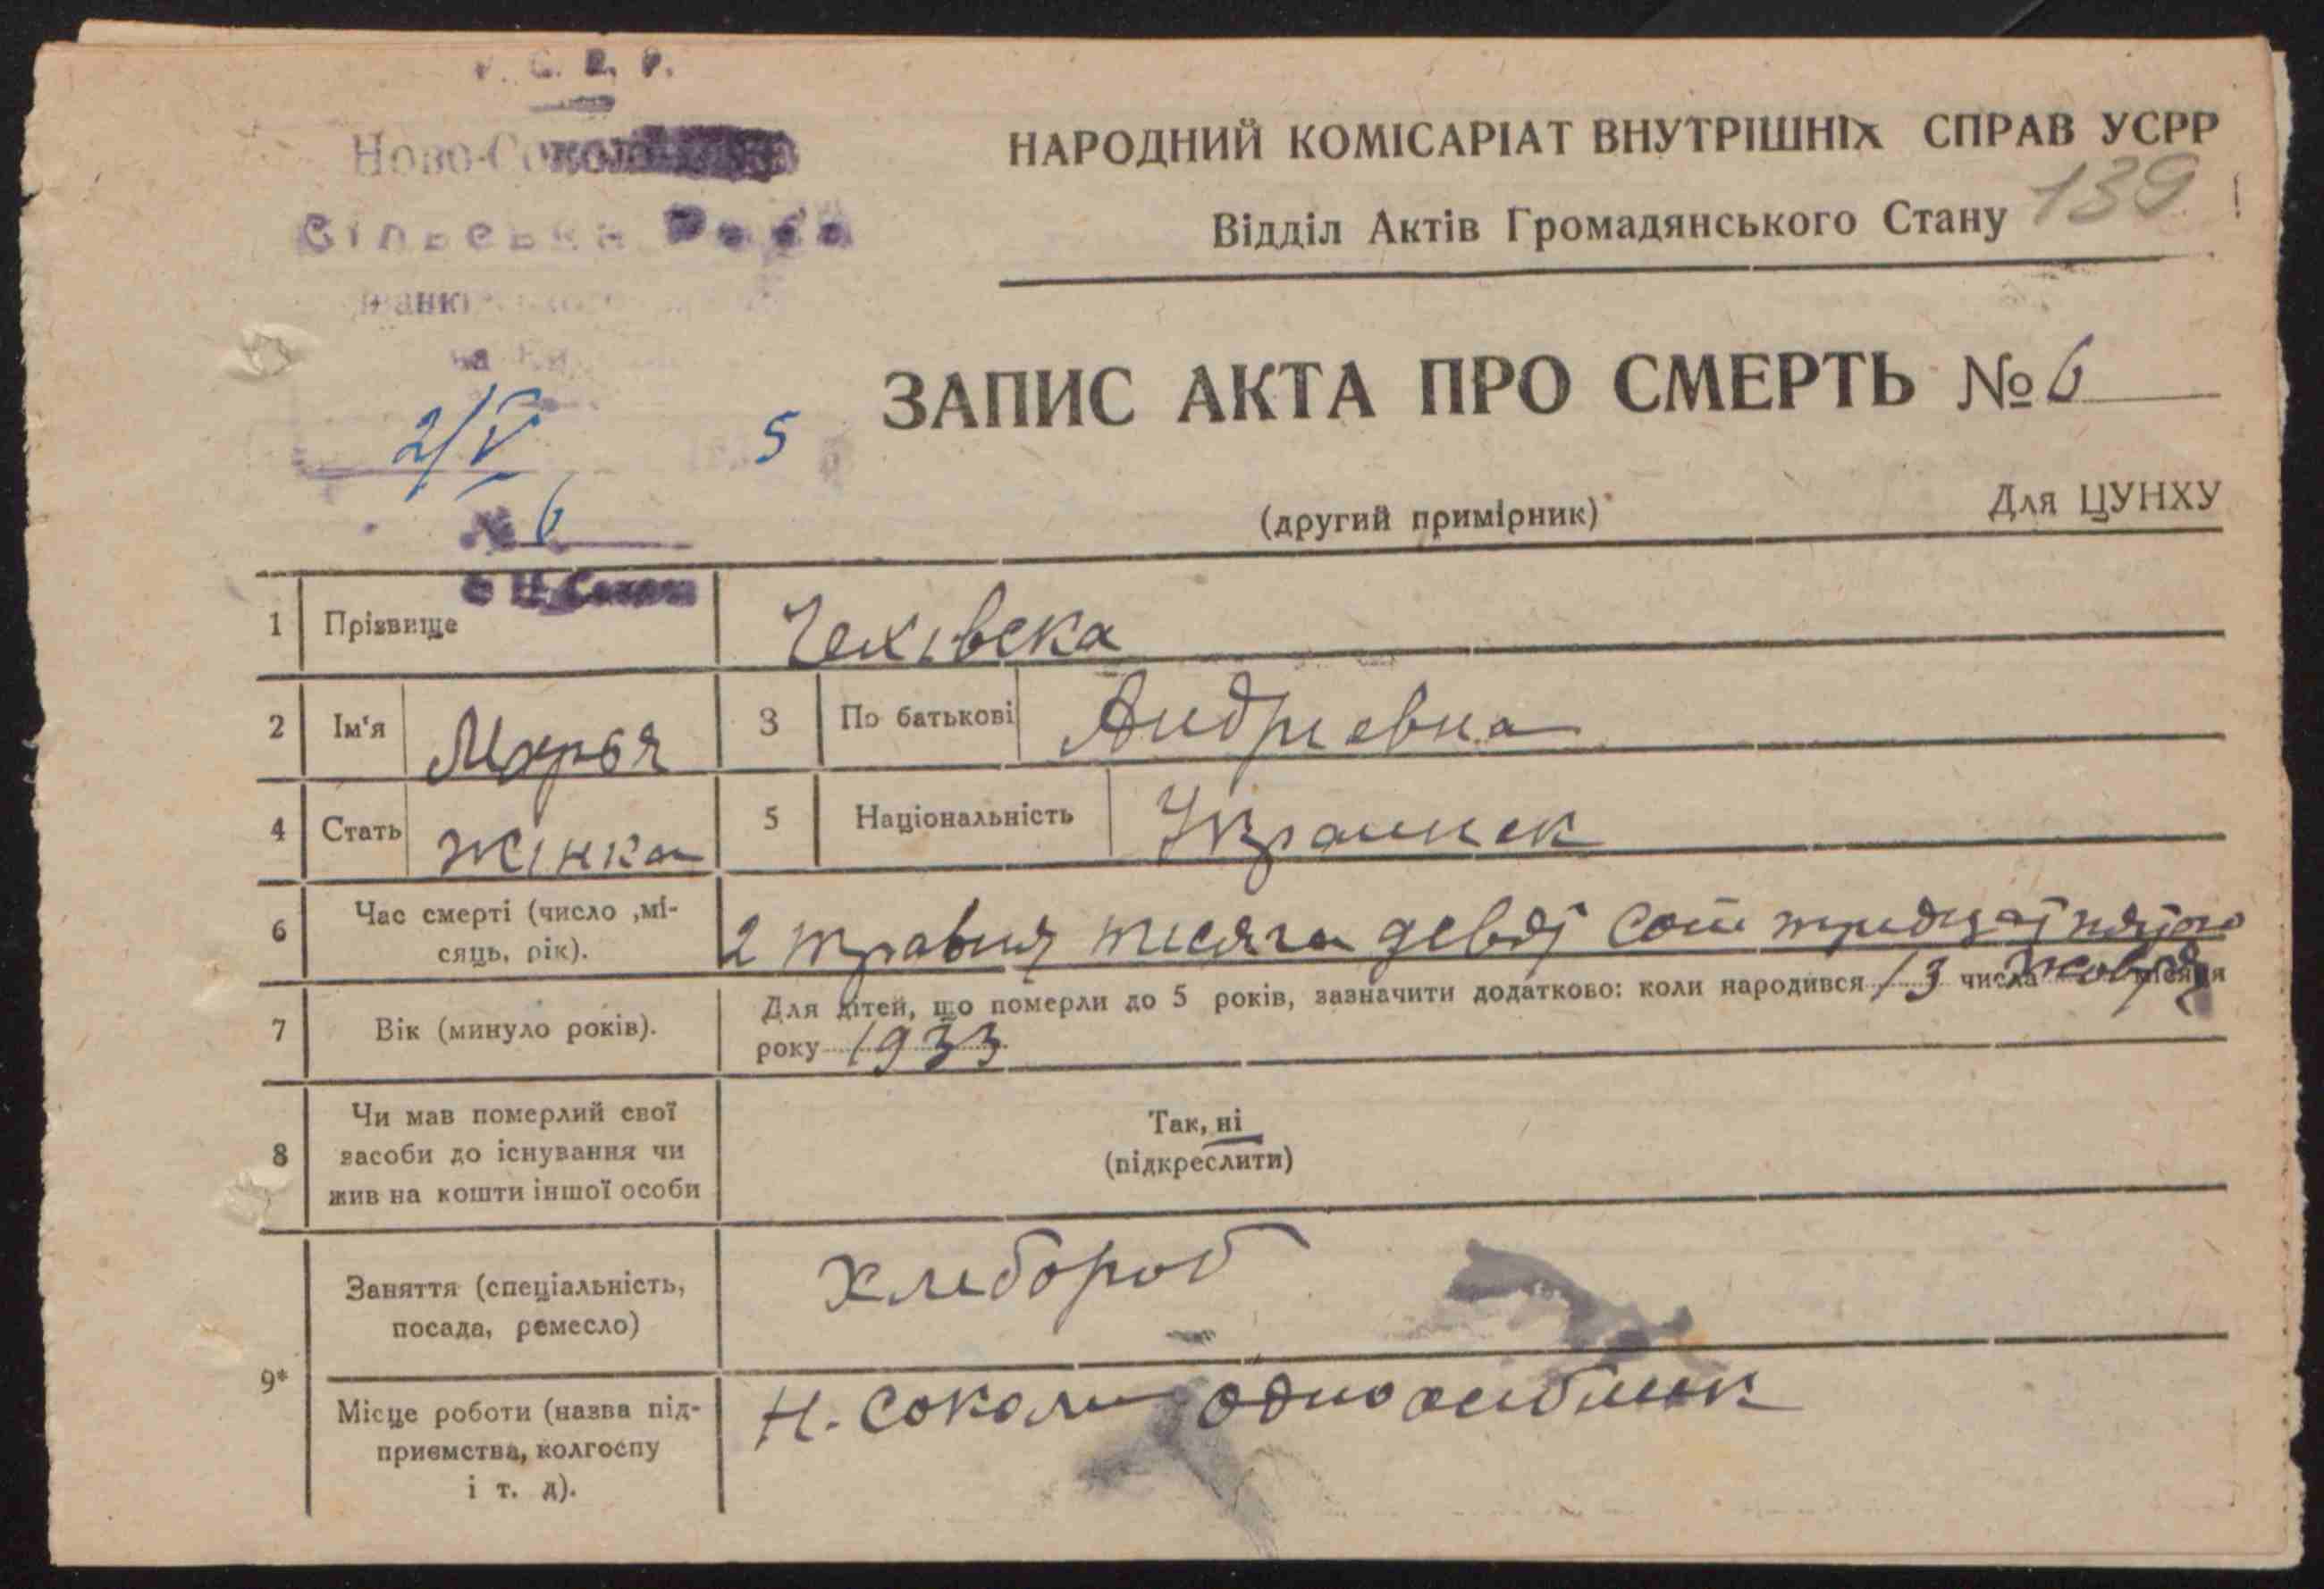 Ново-Соколо
Сільська Рада
НАРОДНИЙ КОМІСАРІАТ ВНУТРІШНІХ СПРАВ УСРР
Відділ Актів Громадянського Стану 139
ЗАПИС АКТА ПРО СМЕРТЬ № 6
2/V 5
№ 6
(другий примірник)
Для ЦУНХУ
1 Прізвище Чехівска
2 Ім'я Марья 3 По батькові Андриевна
4 Стать жінка 5 Національність Украинек
6 Час смерті (число ,мі-
сяць, рік).
2 травня тисяча девят сот тридцат пятого
7 Вік (минуло років).
Для дітей, що померли до 5 років, зазначити додатково: коли народився 13 числа жовтня місяця
року 1933
8 Чи мав померлий свої
засоби до існування чи
жив на кошти іншої особи
Так, ні
(підкреслити)
9*
Заняття (спеціальність,
посада, ремесло)
хлебороб
Місце роботи (назва під-
приємства, колгоспу
і т. д).
Н. Сокол одноосибник